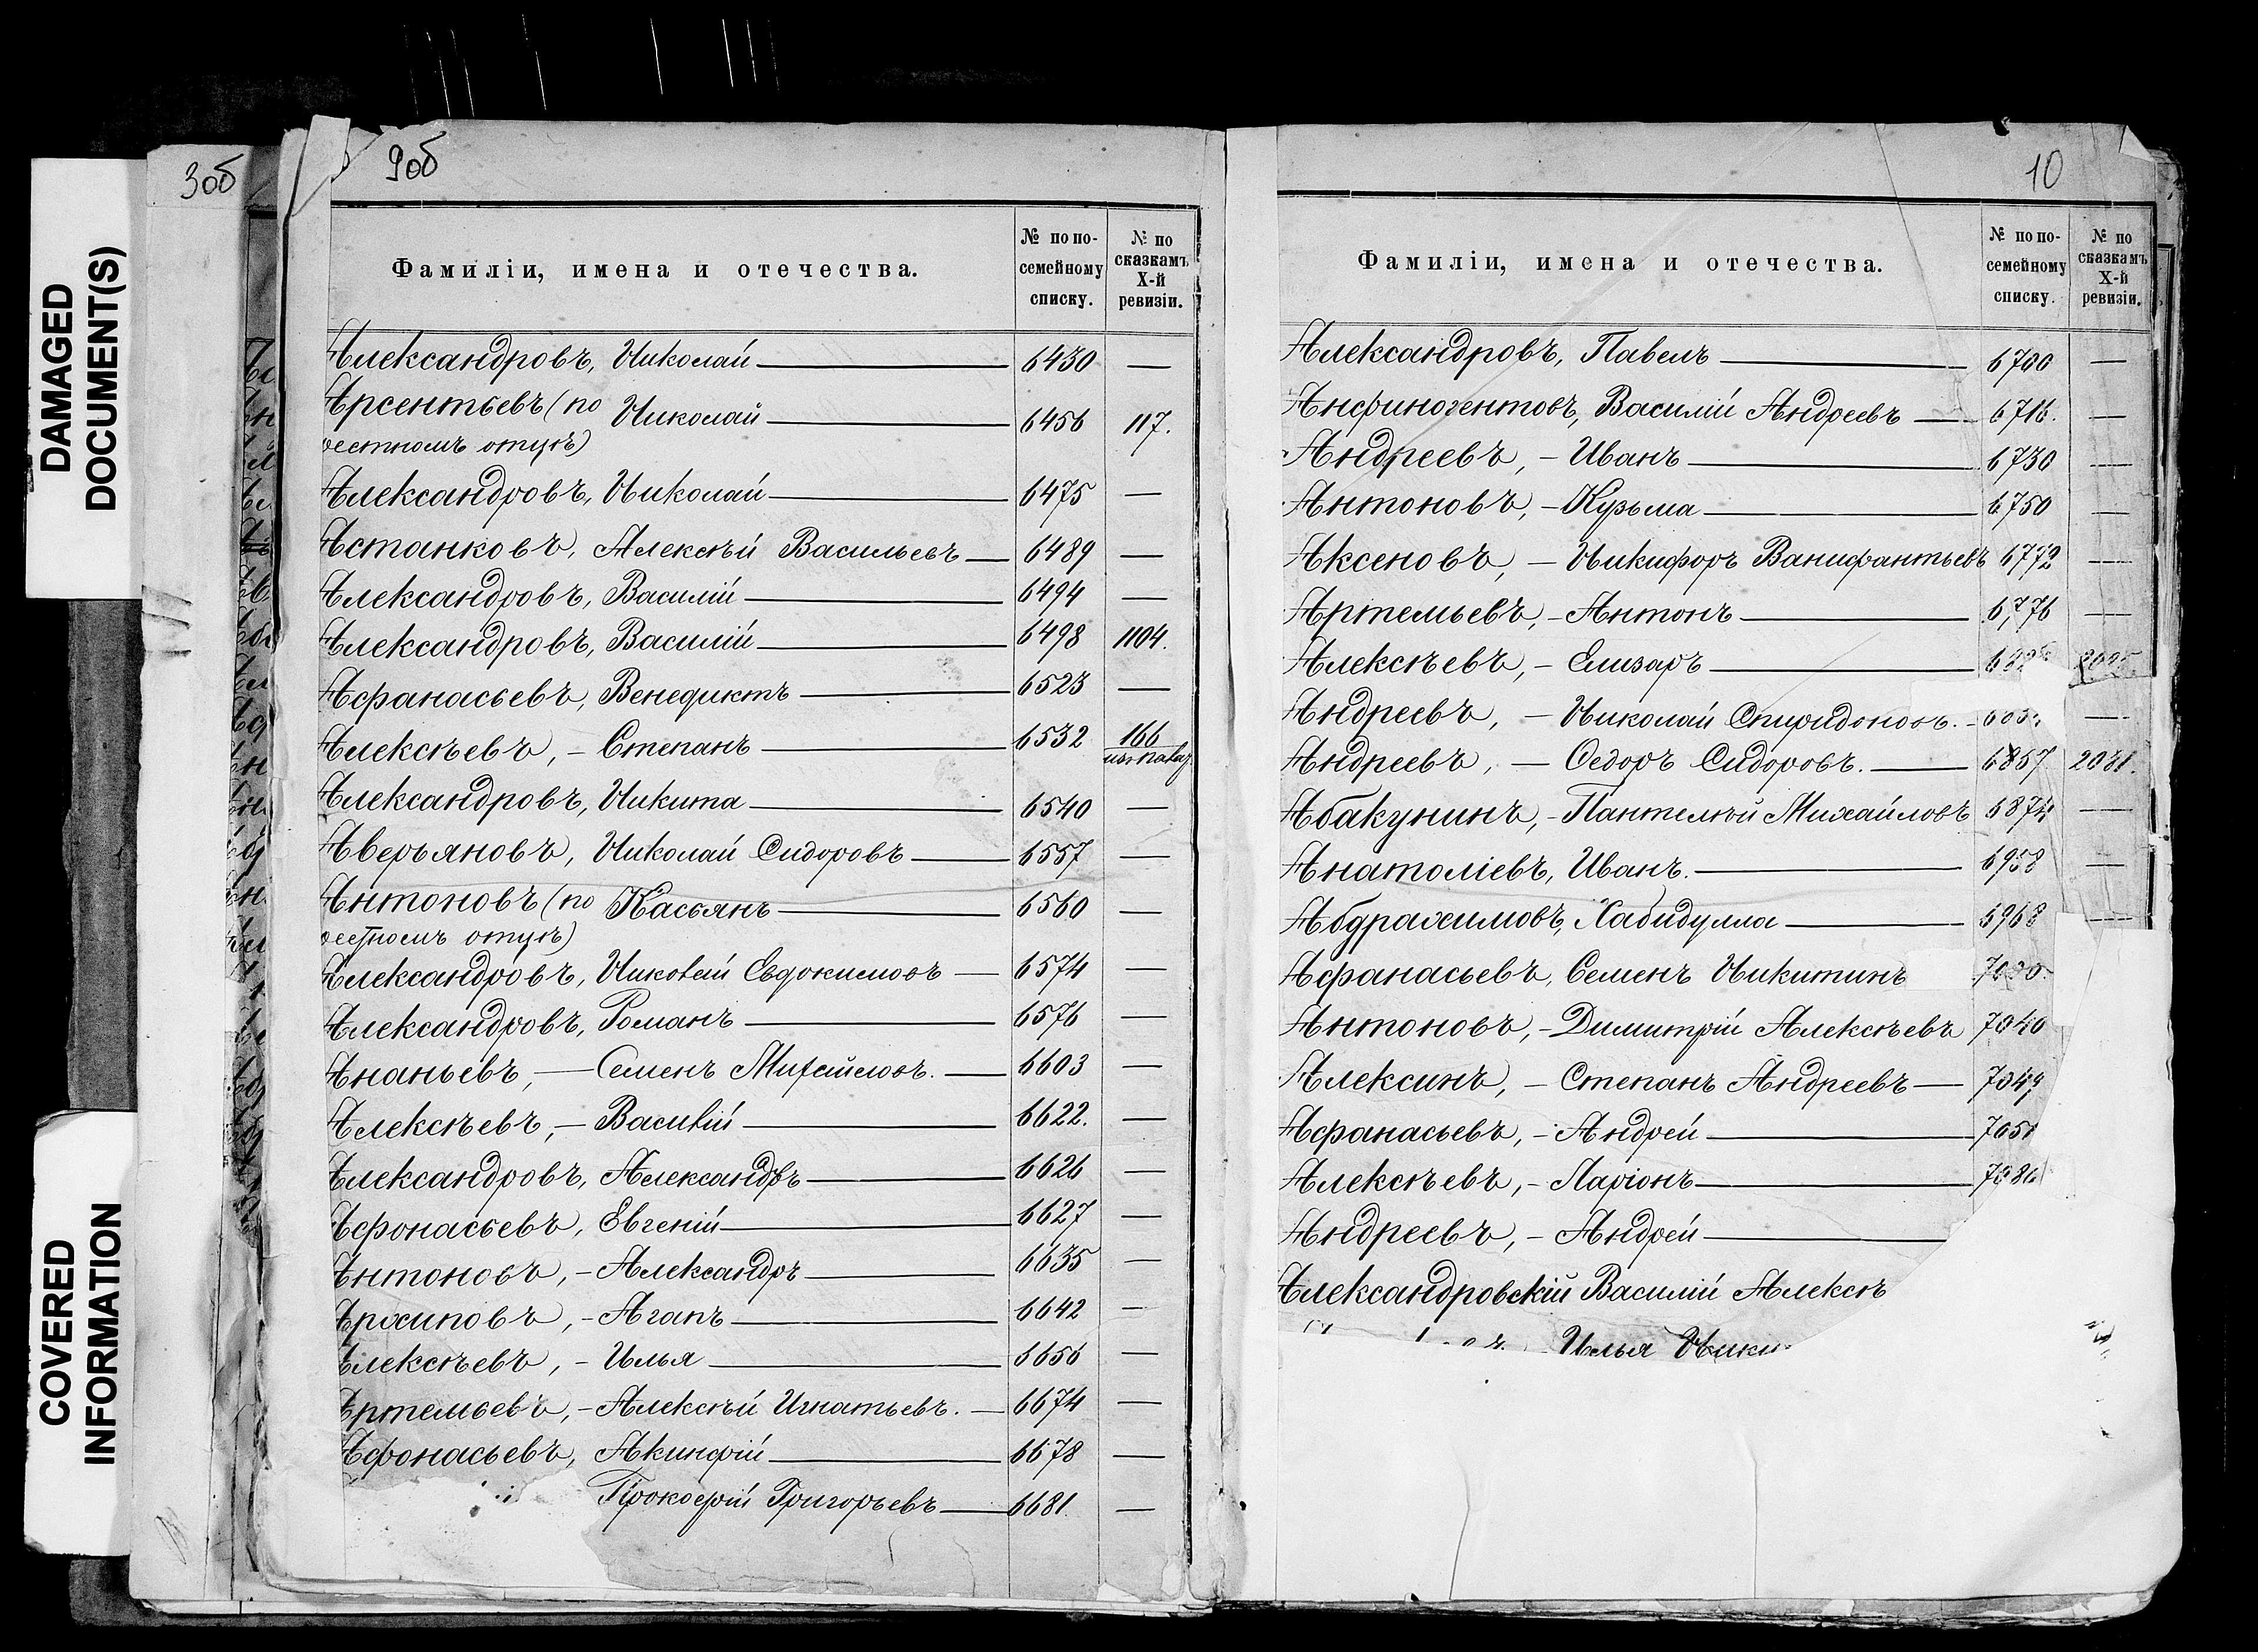 DAMAGED
DOCUMENT(S)
COVERED
INFORMATION
3об
9об
Фамиліи, имена и отечества.
№ по по-
семейному
списку.
№ по
сказкамъ
X-й
ревизіи.
Александровъ, Николай — 6430 —
Арсентьевъ (по Николай — 6456 117.
крестномъ отцѣ)
Александровъ, Николай — 6475 —
Астанковъ, Алексѣй Васильевъ — 6489 —
Александровъ, Василій — 6494 —
Александровъ, Василій — 6498 1104.
Афанасьевъ, Венедиктъ — 6523 —
Алексѣевъ, – Степанъ — 6532 166
Александровъ, Никита — 6540 —
Аверьяновъ, Николай Сидоровъ — 6557 —
Антоновъ (по Касьянъ — 6560 —
крестномъ отцѣ)
Александровъ, Николай Евдокимовъ — 6574 —
Александровъ, Романъ — 6576 —
Ананьевъ, — Семенъ Михайловъ. — 6603 —
Алексѣевъ, — Василій — 6622. —
Александровъ, Александръ — 6626 —
Афонасьевъ, Евгеній — 6627 —
Антоновъ, – Александръ — 6635 —
Архиповъ, – Агапъ — 6642 —
Алексѣевъ, – Илья — 6656 —
Артемьевъ, – Алексѣй Игнатьевъ. — 6674 —
Афонасьевъ, Акинфій — 6678 —
Прокофій Григорьевъ — 6681. —
10
Фамиліи, имена и отечества.
№ по по-
семейному
списку.
№ по
сказкамъ
X-й
ревизіи.
Александровъ, Павелъ — 6700 —
Анфиногентовъ, Василій Андреевъ — 6716. —
Андреевъ, – Иванъ — 6730 —
Антоновъ, – Кузьма — 6750 —
Аксеновъ, — Никифоръ Ванифантьевъ 6772 —
Артемьевъ, – Антонъ — 6776 —
Алексѣевъ, – Елизаръ —
Андреевъ, — Николай Спиридоновъ. – —
Андреевъ, — Федоръ Сидоровъ. — 6857 2031.
Абакунинъ, – Пантелѣй Михайловъ 6874 —
Анатоліевъ, Иванъ. — 6958 —
Абдрахимовъ, Хабидулла — 6968 —
Афанасьевъ, Семенъ Никитинъ
Антоновъ, – Димитрій Алексѣевъ 7040
Алексинъ, – Степанъ Андреевъ — 7049
Афанасьевъ, – Андрей —
Алексѣевъ, – Ларіонъ — 7086
Андреевъ, – Андрей —
Александровскій Василій Алексѣ
Илья Ники